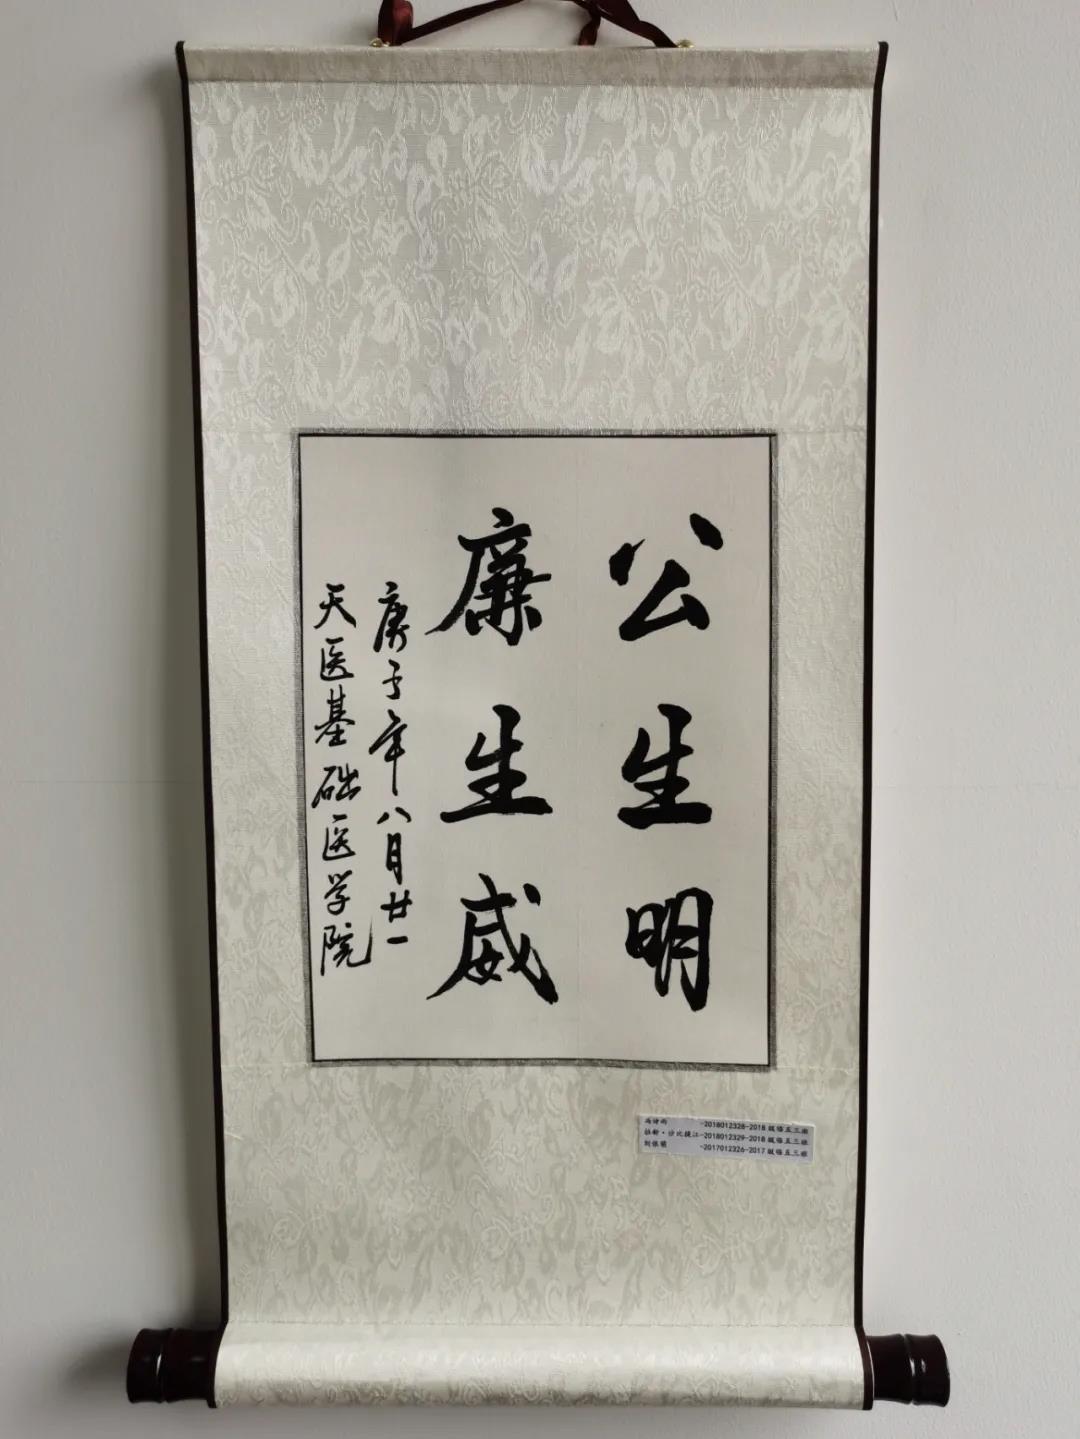 公生明
廉生威
庚子年八月廿一
天医基础医学院
-2018012328-2018级临五三班
拉郝·沙比提江-2018012329-2018级临五三班
-2017012326-2017级临五三班